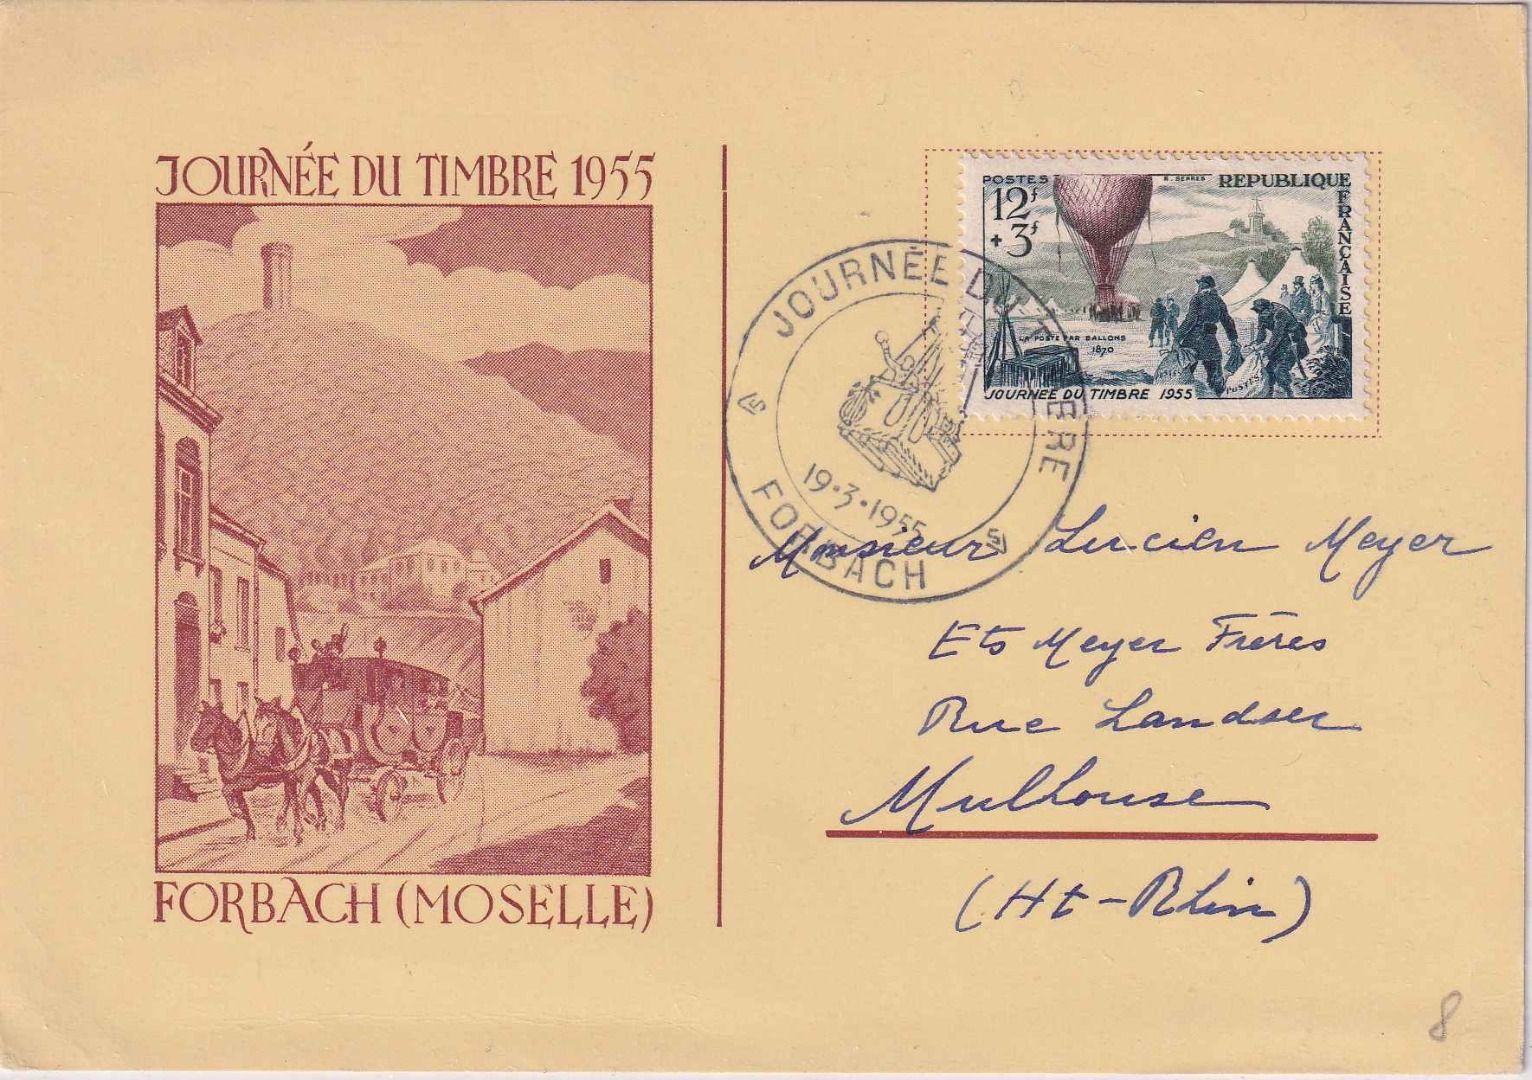 JOURNÉE DU TIMBRE 1955
FORBACH (MOSELLE)
POSTES
12f
+3f
R. SERRES
REPUBLIQUE FRANÇAISE
LA POSTE PAR BALLONS
1870
POSTES
JOURNEE DU TIMBRE 1955
JOURNÉE DU TIMBRE
19·3·1955
FORBACH
Monsieur Lucien Meyer
Ets Meyer Frères
Rue Landser
Mulhouse
(Ht-Rhin)
8